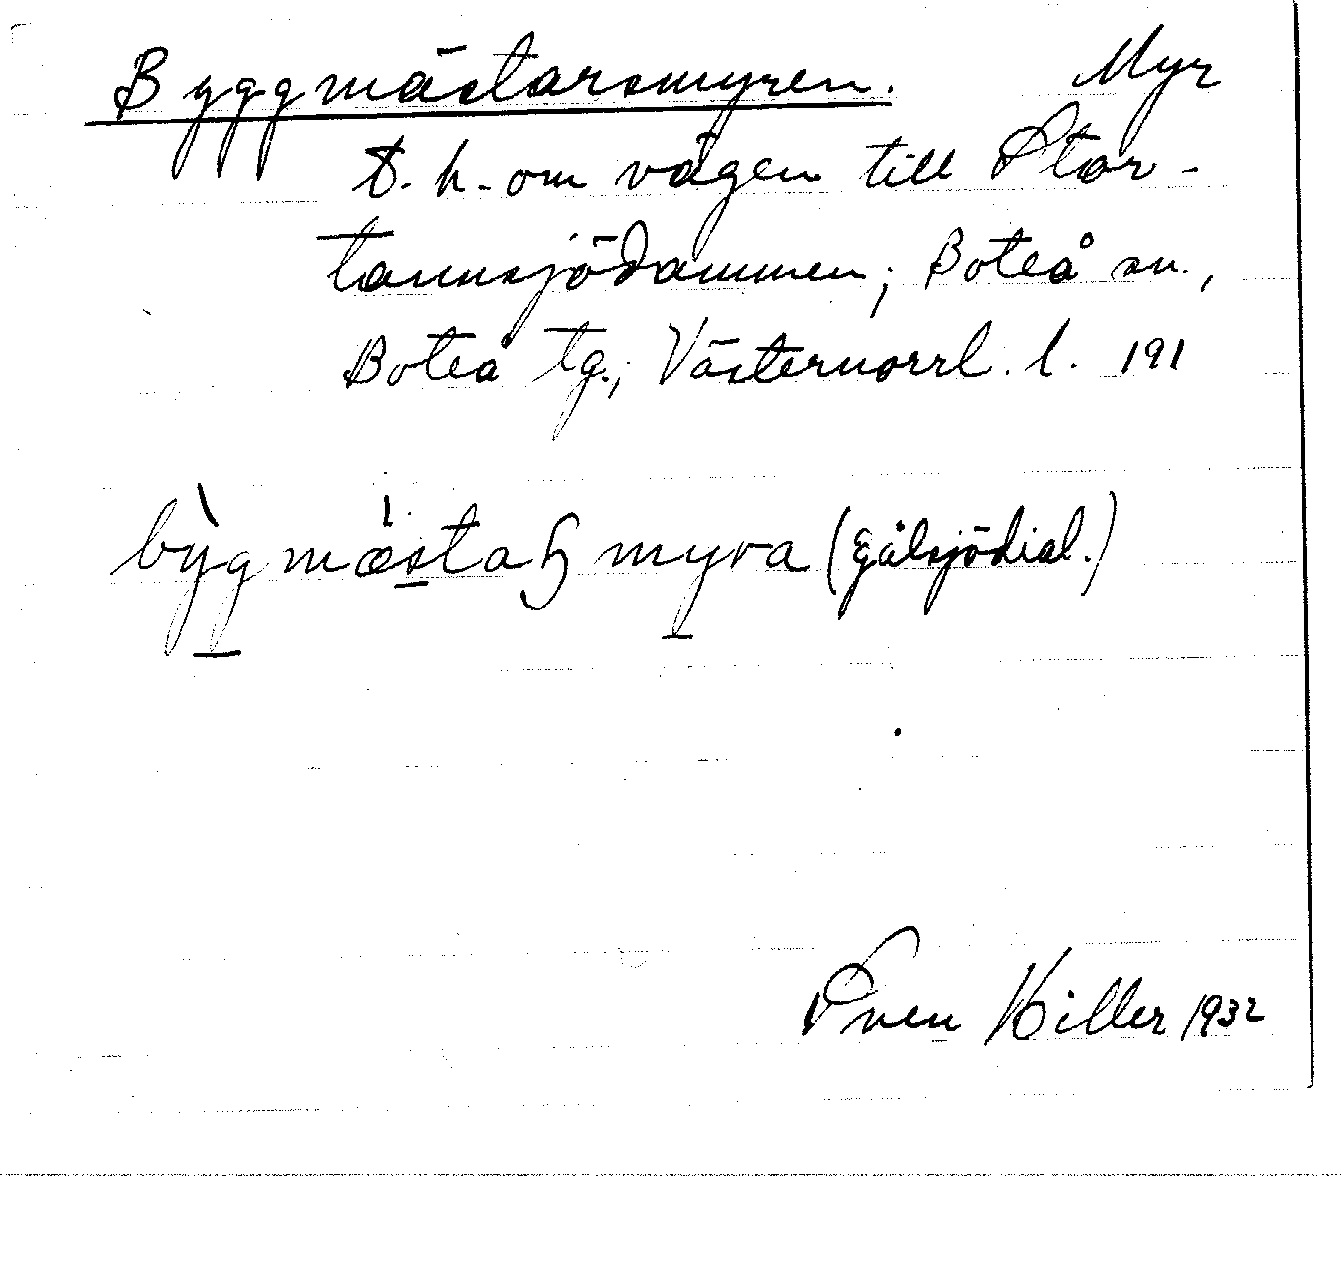 Byggmästarsmyren. Myr
t. h. om vägen till Stor-
tannsjödammen; Boteå sn.,
Boteå tg., Västernorrl. l. 191
bỳgmæsta myra (gålsjödial.)
Sven Hiller 1932